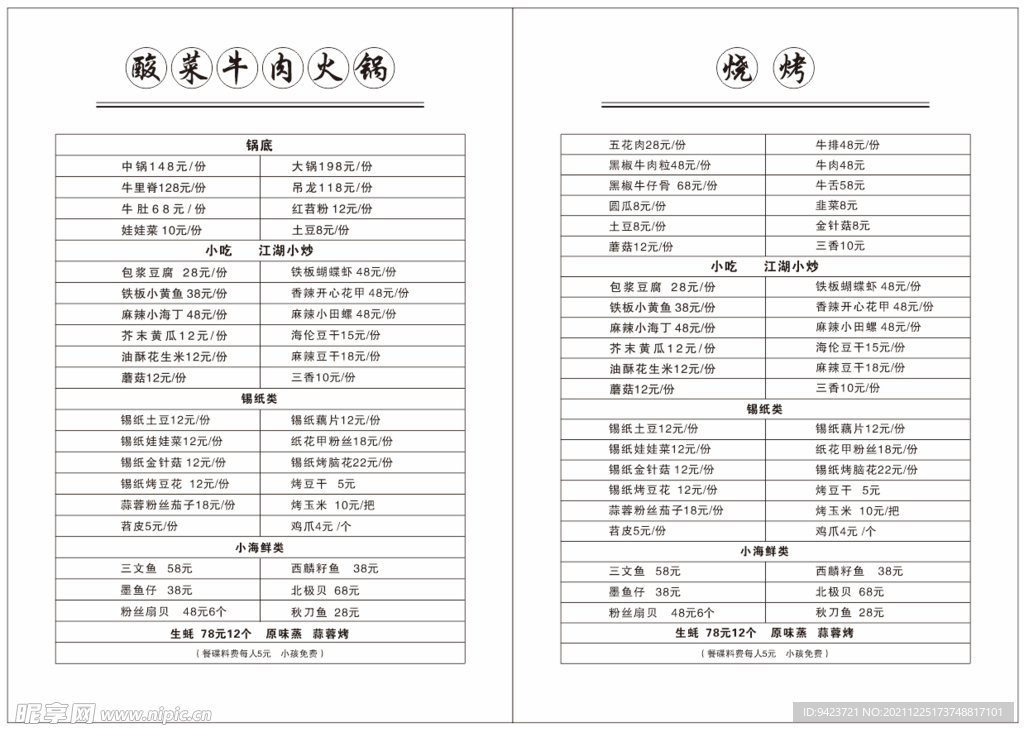 酸菜牛肉火锅
锅底
中锅148元/份 大锅198元/份
牛里脊128元/份 吊龙118元/份
牛肚68元/份 红苕粉 12元/份
娃娃菜 10元/份 土豆8元/份
小吃 江湖小炒
包浆豆腐 28元/份 铁板蝴蝶虾 48元/份
铁板小黄鱼 38元/份 香辣开心花甲 48元/份
麻辣小海丁 48元/份 麻辣小田螺 48元/份
芥末黄瓜12元/份 海伦豆干15元/份
油酥花生米12元/份 麻辣豆干18元/份
蘑菇12元/份 三香10元/份
锡纸类
锡纸土豆12元/份 锡纸藕片12元/份
锡纸娃娃菜12元/份 纸花甲粉丝18元/份
锡纸金针菇 12元/份 锡纸烤脑花22元/份
锡纸烤豆花 12元/份 烤豆干 5元
蒜蓉粉丝茄子18元/份 烤玉米 10元/把
苕皮5元/份 鸡爪4元 /个
小海鲜类
三文鱼 58元 西麟籽鱼 38元
墨鱼仔 38元 北极贝 68元
粉丝扇贝 48元6个 秋刀鱼 28元
生蚝 78元12个 原味蒸 蒜蓉烤
（餐碟料费每人5元 小孩免费）
烧烤
五花肉28元/份 牛排48元/份
黑椒牛肉粒48元/份 牛肉48元
黑椒牛仔骨 68元/份 牛舌58元
圆瓜8元/份 韭菜8元
土豆8元/份 金针菇8元
蘑菇12元/份 三香10元
小吃 江湖小炒
包浆豆腐 28元/份 铁板蝴蝶虾 48元/份
铁板小黄鱼 38元/份 香辣开心花甲 48元/份
麻辣小海丁 48元/份 麻辣小田螺 48元/份
芥末黄瓜12元/份 海伦豆干15元/份
油酥花生米12元/份 麻辣豆干18元/份
蘑菇12元/份 三香10元/份
锡纸类
锡纸土豆12元/份 锡纸藕片12元/份
锡纸娃娃菜12元/份 纸花甲粉丝18元/份
锡纸金针菇 12元/份 锡纸烤脑花22元/份
锡纸烤豆花 12元/份 烤豆干 5元
蒜蓉粉丝茄子18元/份 烤玉米 10元/把
苕皮5元/份 鸡爪4元 /个
小海鲜类
三文鱼 58元 西麟籽鱼 38元
墨鱼仔 38元 北极贝 68元
粉丝扇贝 48元6个 秋刀鱼 28元
生蚝 78元12个 原味蒸 蒜蓉烤
（餐碟料费每人5元 小孩免费）
昵享网 www.nipic.cn
ID:9423721 NO:20211225173748817101